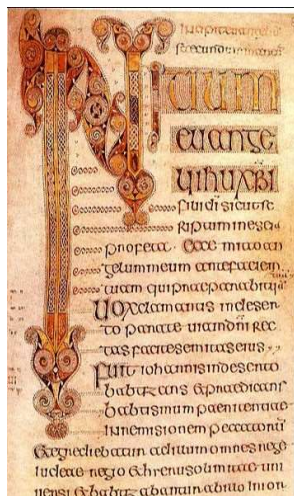 INITIUM
euange
lii ihu xpi
fili di sicut sc
riptum in esei
profeta · Ecce mitto an
gelum meum ante faciem
tuam qui praeparabit
Uox clamantis in deser
to parate uiam dni rec
tas facite semitas eius
Fuit iohannis in deserto
babtizans & praedicans
babtismum paenitentiae
in remisionem peccatorum
& ad illum omnes
iudeae regio &
uersi & babtizabantur ab illo in ior